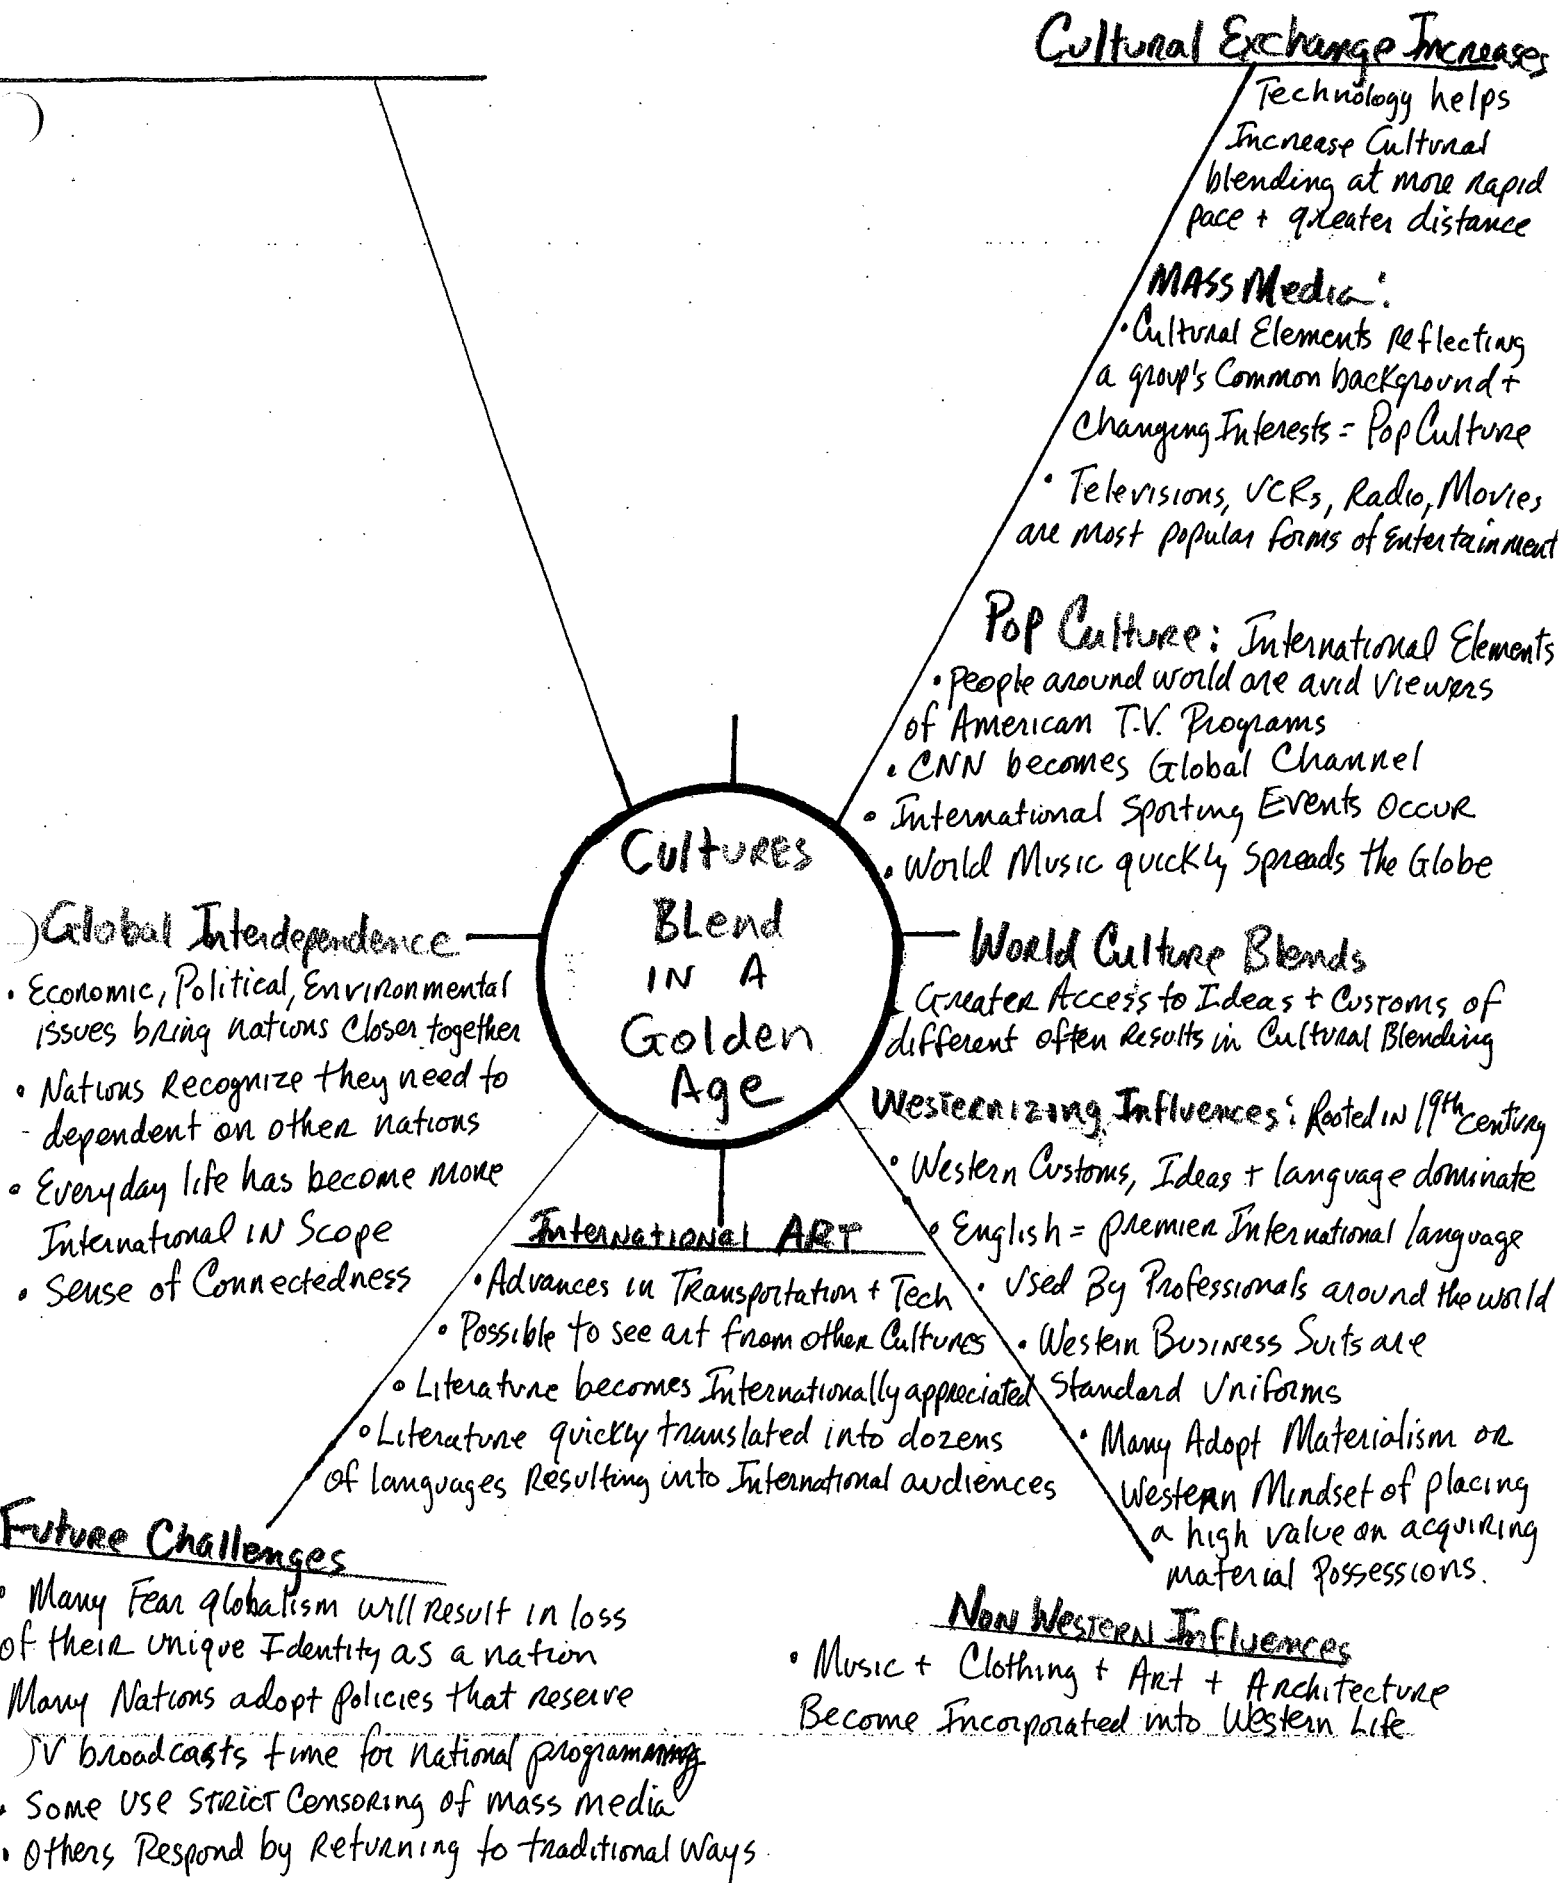 Cultural Exchange Increases
Technology helps
Increase Cultural
blending at more rapid
pace + greater distance
MASS Media:
• Cultural Elements reflecting
a group's Common background +
Changing Interests = Pop Culture
• Televisions, VCRs, Radio, Movies
are most popular forms of Entertainment
Pop Culture: International Elements
• People around world are avid viewers
of American T.V. Programs
• CNN becomes Global Channel
• International Sporting Events Occur
• World Music quickly Spreads the Globe
Cultures
Blend
IN A
Golden
Age
World Culture Blends
Greater Access to Ideas + Customs of
different often Results in Cultural Blending
Westernizing Influences: Rooted in 19th century
• Western Customs, Ideas + language dominate
• English = premier International language
• Used By Professionals around the world
• Western Business Suits are
Standard Uniforms
• Many Adopt Materialism or
Western Mindset of placing
a high value on acquiring
material Possessions.
Non Western Influences
• Music + Clothing + Art + Architecture
Become Incorporated into Western Life
International ART
• Advances in Transportation + Tech
• Possible to see art from other Cultures
• Literature becomes Internationally appreciated
• Literature quickly translated into dozens
of languages Resulting into International audiences
Global Interdependence
• Economic, Political, Environmental
issues bring nations closer together
• Nations Recognize they need to
dependent on other nations
• Everyday life has become more
International IN Scope
• Sense of Connectedness
Future Challenges
• Many Fear globalism will Result in loss
of their unique Identity as a nation
Many Nations adopt policies that reserve
TV broadcasts time for national programming
• Some use STRICT Censoring of mass media
• Others Respond by Returning to traditional Ways